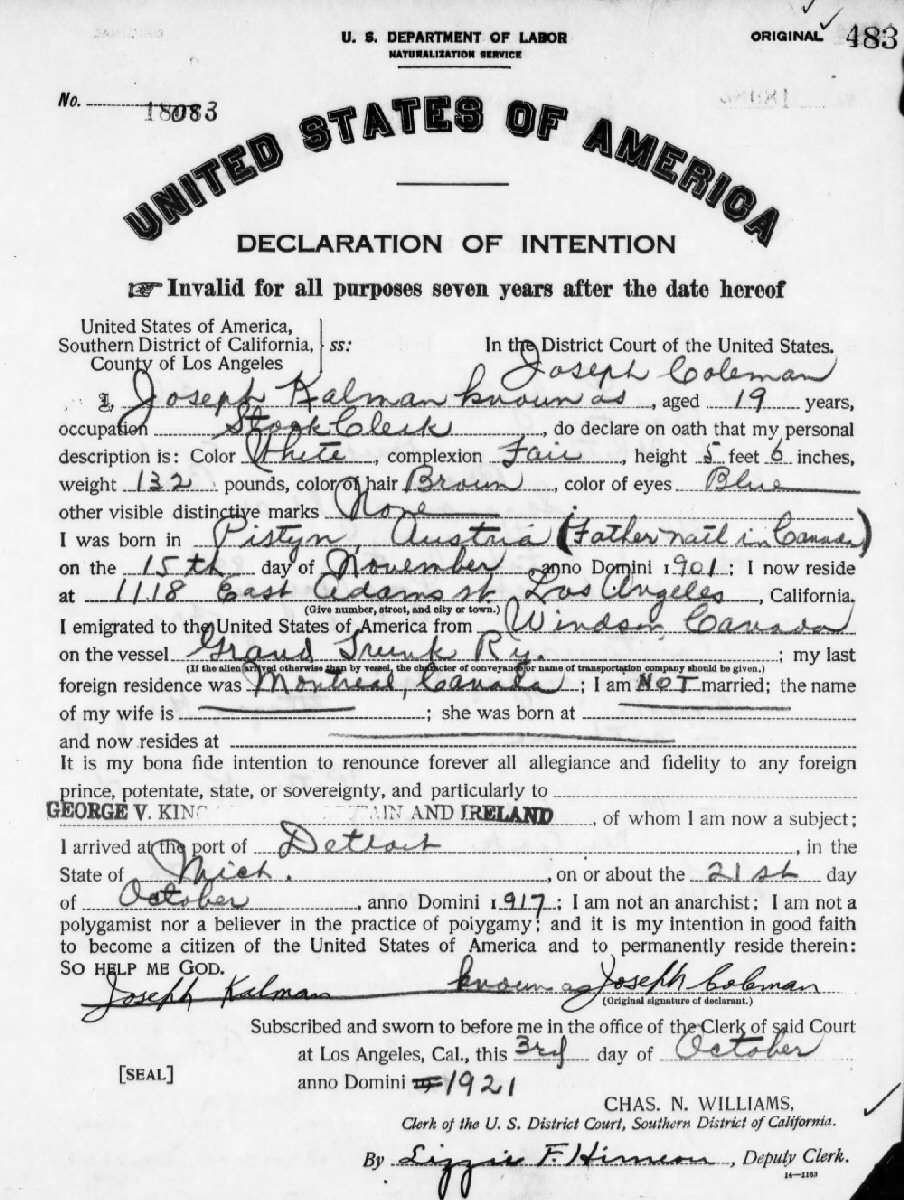 U. S. DEPARTMENT OF LABOR
NATURALIZATION SERVICE
ORIGINAL 483
No. 18083
UNITED STATES OF AMERICA
DECLARATION OF INTENTION
Invalid for all purposes seven years after the date hereof
United States of America,
Southern District of California, ss:
County of Los Angeles
In the District Court of the United States.
Joseph Coleman
I, Joseph Kalman known as, aged 19 years,
occupation Stock Clerk, do declare on oath that my personal
description is: Color White, complexion Fair, height 5 feet 6 inches,
weight 132 pounds, color of hair Brown, color of eyes Blue
other visible distinctive marks None
I was born in Pistyn, Austria (Father nat'l in Canada)
on the 15th day of November anno Domini 1901; I now reside
at 1118 East Adams st Los Angeles, California.
(Give number, street, and city or town.)
I emigrated to the United States of America from Windsor, Canada
on the vessel Grand Trunk Ry.; my last
(If the alien arrived otherwise than by vessel, the character of conveyance or name of transportation company should be given.)
foreign residence was Montreal, Canada; I am NOT married; the name
of my wife is ; she was born at
and now resides at
It is my bona fide intention to renounce forever all allegiance and fidelity to any foreign
prince, potentate, state, or sovereignty, and particularly to
GEORGE V. KING AIN AND IRELAND, of whom I am now a subject;
I arrived at the port of Detroit, in the
State of Mich., on or about the 21st day
of October, anno Domini 1917; I am not an anarchist; I am not a
polygamist nor a believer in the practice of polygamy; and it is my intention in good faith
to become a citizen of the United States of America and to permanently reside therein:
SO HELP ME GOD.
Joseph Kalman known as Joseph Coleman
(Original signature of declarant.)
Subscribed and sworn to before me in the office of the Clerk of said Court
at Los Angeles, Cal., this 3rd day of October
[SEAL]
anno Domini 1921
CHAS. N. WILLIAMS,
Clerk of the U. S. District Court, Southern District of California.
By Lizzie F. , Deputy Clerk.
14-1163